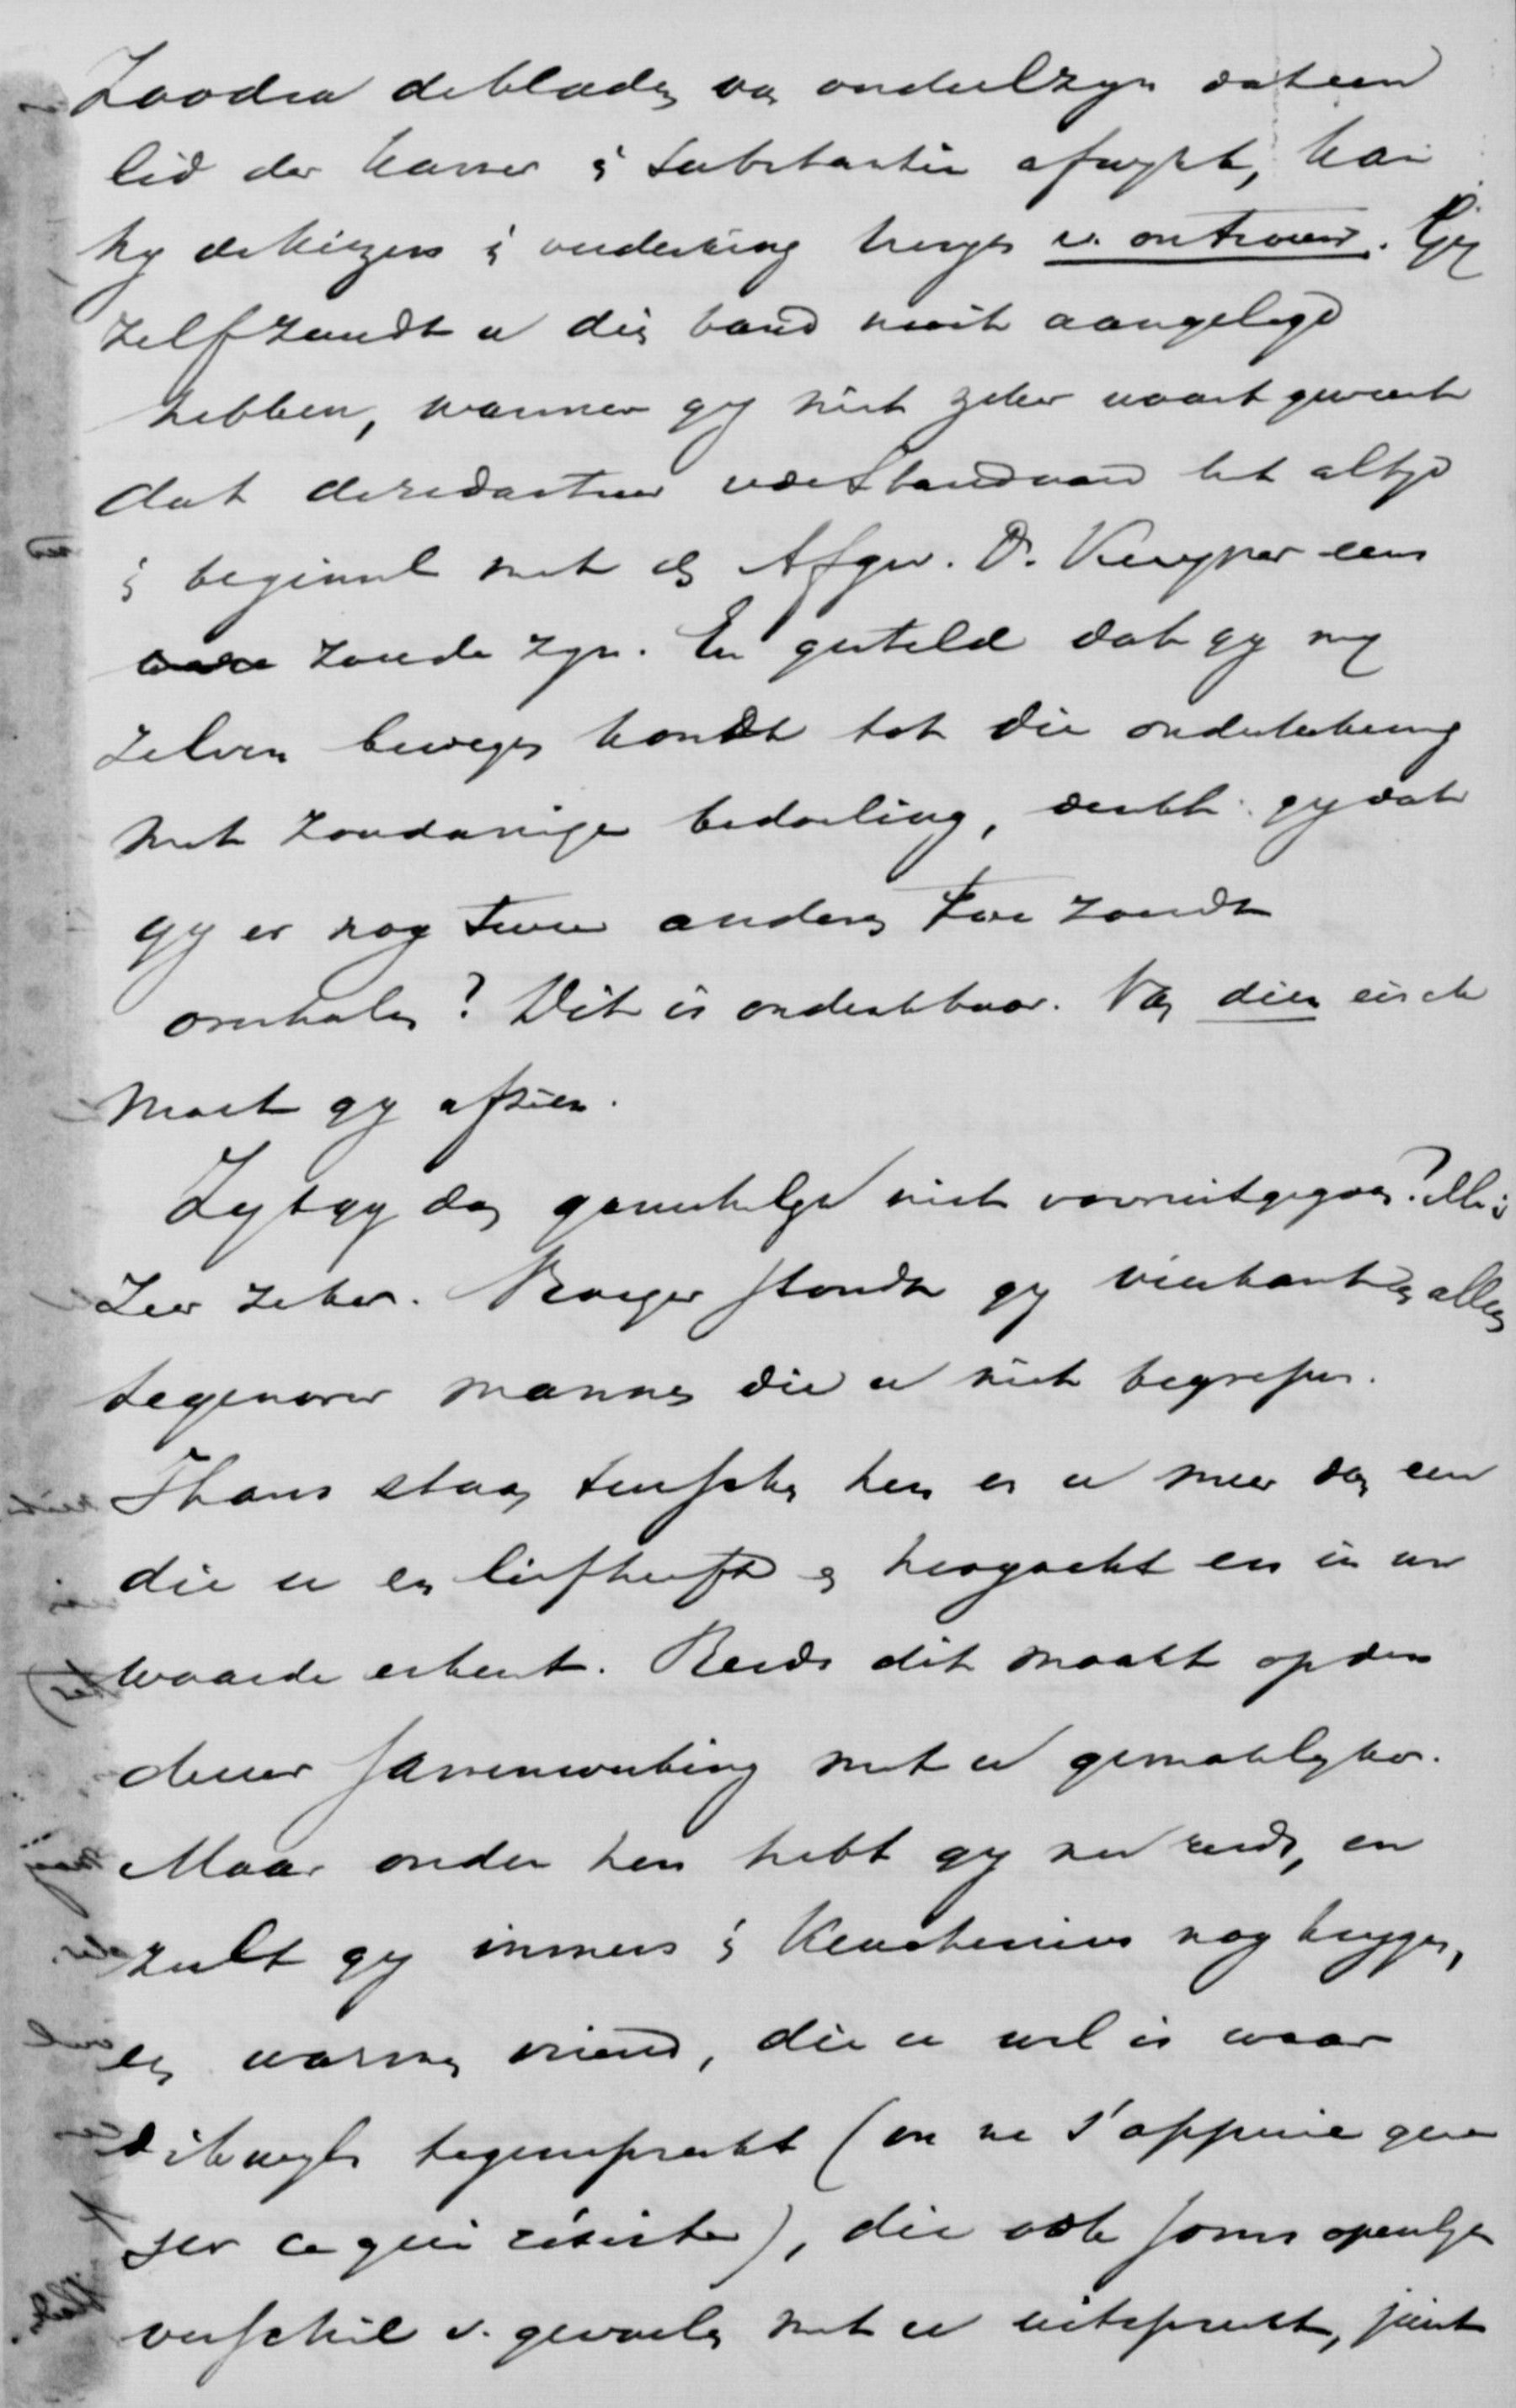 Zoodra de bladen van oordeel zyn dat een
lid der Kamer in substantie afwykt, kan
hy de kiezers in verdenking brengen v. ontrouw. Gy
zelf zoudt u dien band nooit aangelegd
hebben, wanneer gy niet zeker waart geweest
dat de redacteur v de Standaard het altyd
in beginsel met den Afgev. Dr. Kuyper eens
zoude zyn. En gesteld dat gy my
zelven bewegen kondt tot die onderteekening
met zoodanige bedoeling, denkt gy dat
gy er nog twee anderen toe zoudt
overhalen? Dit is ondenkbaar. Van dien eisch
moet gy afzien.
Zyt gy dan gemeentelyk niet vooruitgegaan? My
Zeer zeker. Vroeger stondt gy vierkant en alleen
tegenover mannen die u niet begrepen.
Thans staan tusschen hen en u meer dan een
die u en liefheeft en hoogacht en in uw
waarde erkent. Reeds dit maakt op den
duur samenwerking met u gemaklyker.
Maar onder hen hebt gy nu reeds, en
zult gy immers in Keuchenius nog krygen,
een warmen vriend, die u wel is waar
dikwyls tegenspreekt (on ne s'appuie que
sur ce qui résiste), die ook soms openlyk
verschil v. gevoelen met u uitspreekt, juist